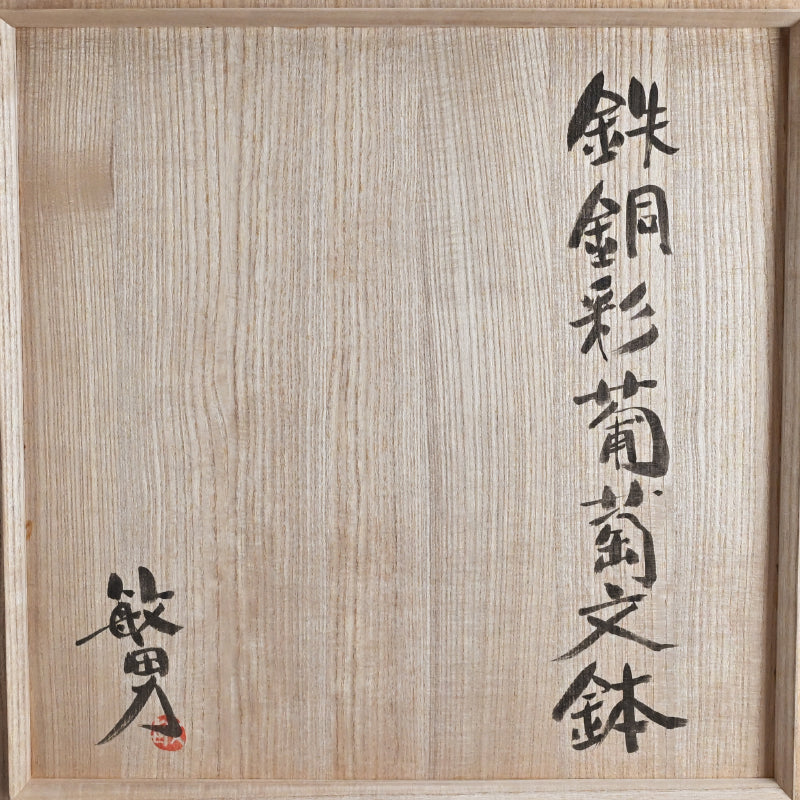 鉄銅彩葡萄文鉢
敏男